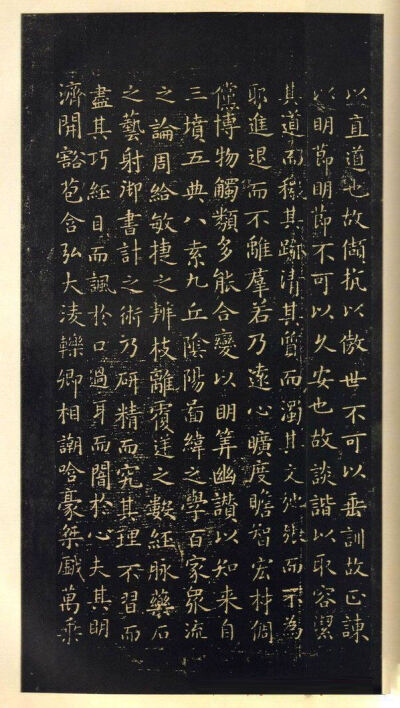 以直道也故頡抗以傲世不可以垂訓故正諫
以明節明節不可以久安也故談諧以取容潔
其道而穢其跡清其質而濁其文弛張而不為
耶進退而不離群若乃遠心曠度瞻智宏材倜
儻博物觸類多能合變以明筭幽讚以知来自
三墳五典八索九丘陰陽圖緯之學百家眾流
之論周給敏捷之辨枝離覆逆之數經脉藥石
之藝射御書計之術乃研精而究其理不習而
盡其巧經目而諷於口過耳而闇於心夫其明
濟開豁苞含弘大淩轢卿相謿哈豪桀戲萬乘